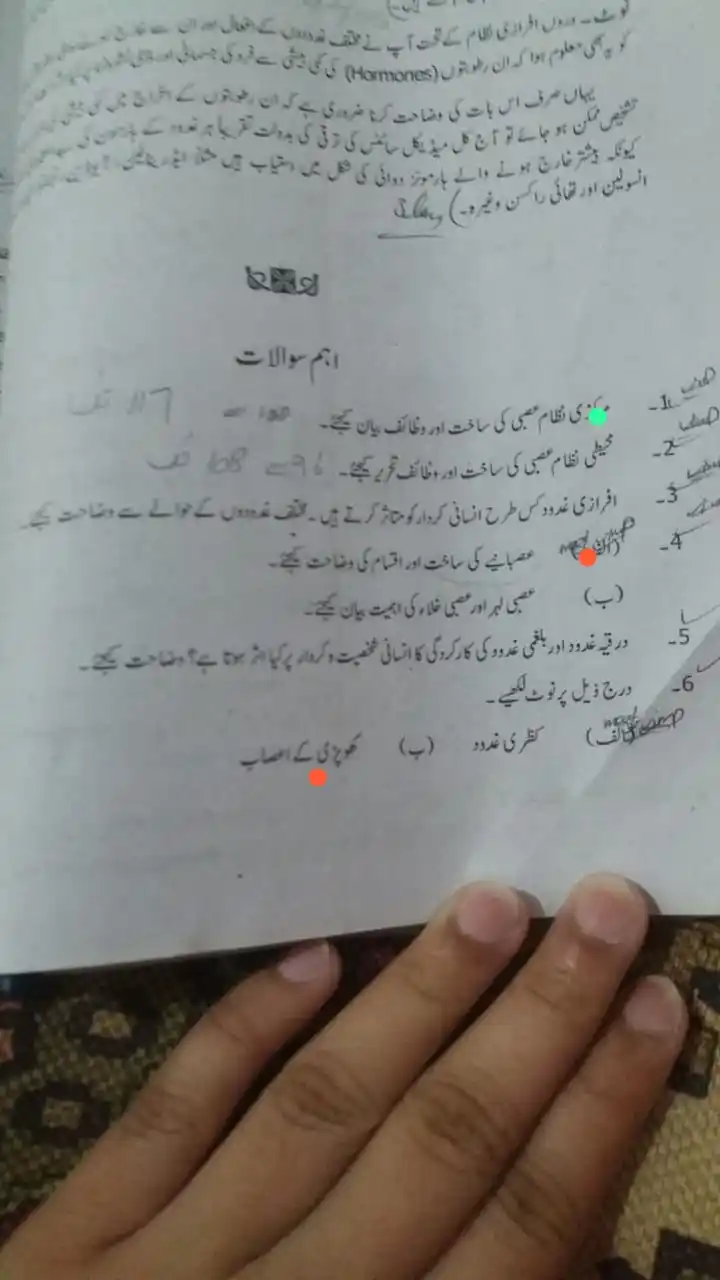 نوٹ۔ دروں افرازی نظام کے تحت آپ نے مختلف غدودوں کے افعال اور ان سے خارج ہونے والی
کو یہ بھی معلوم ہوا کہ ان رطوبتوں (Hormones) کی کمی بیشی سے فرد کی جسمانی اور
یہاں صرف اس بات کی وضاحت کرنا ضروری ہے کہ ان رطوبتوں کے اخراج میں کمی بیشی کی
تشخیص ممکن ہو جائے تو آج کل میڈیکل سائنس کی ترقی کی بدولت تقریباً ہر غدود کے ہارمون کی
کیونکہ بیشتر خارج ہونے والے ہارمونز دوائی کی شکل میں دستیاب ہیں مثلاً
انسولین اور تھائی راکسن وغیرہ۔)
اہم سوالات
1- مرکزی نظام عصبی کی ساخت اور وظائف بیان کیجئے۔ 108 سے 117 تک
2- محیطی نظام عصبی کی ساخت اور وظائف تحریر کیجئے۔ 96 سے 108 تک
3- افرازی غدود کس طرح انسانی کردار کو متاثر کرتے ہیں۔ مختلف غدودوں کے حوالے سے وضاحت کیجئے۔
4- (الف) عصبانیے کی ساخت اور اقسام کی وضاحت کیجئے۔
(ب) عصبی لہر اور عصبی خلاء کی اہمیت بیان کیجئے۔
5- درقیہ غدود اور بلغمی غدود کی کارکردگی کا انسانی شخصیت و کردار پر کیا اثر ہوتا ہے؟ وضاحت کیجئے۔
6- درج ذیل پر نوٹ لکھیے۔
(الف) کظری غدود (ب) کھوپڑی کے اعصاب